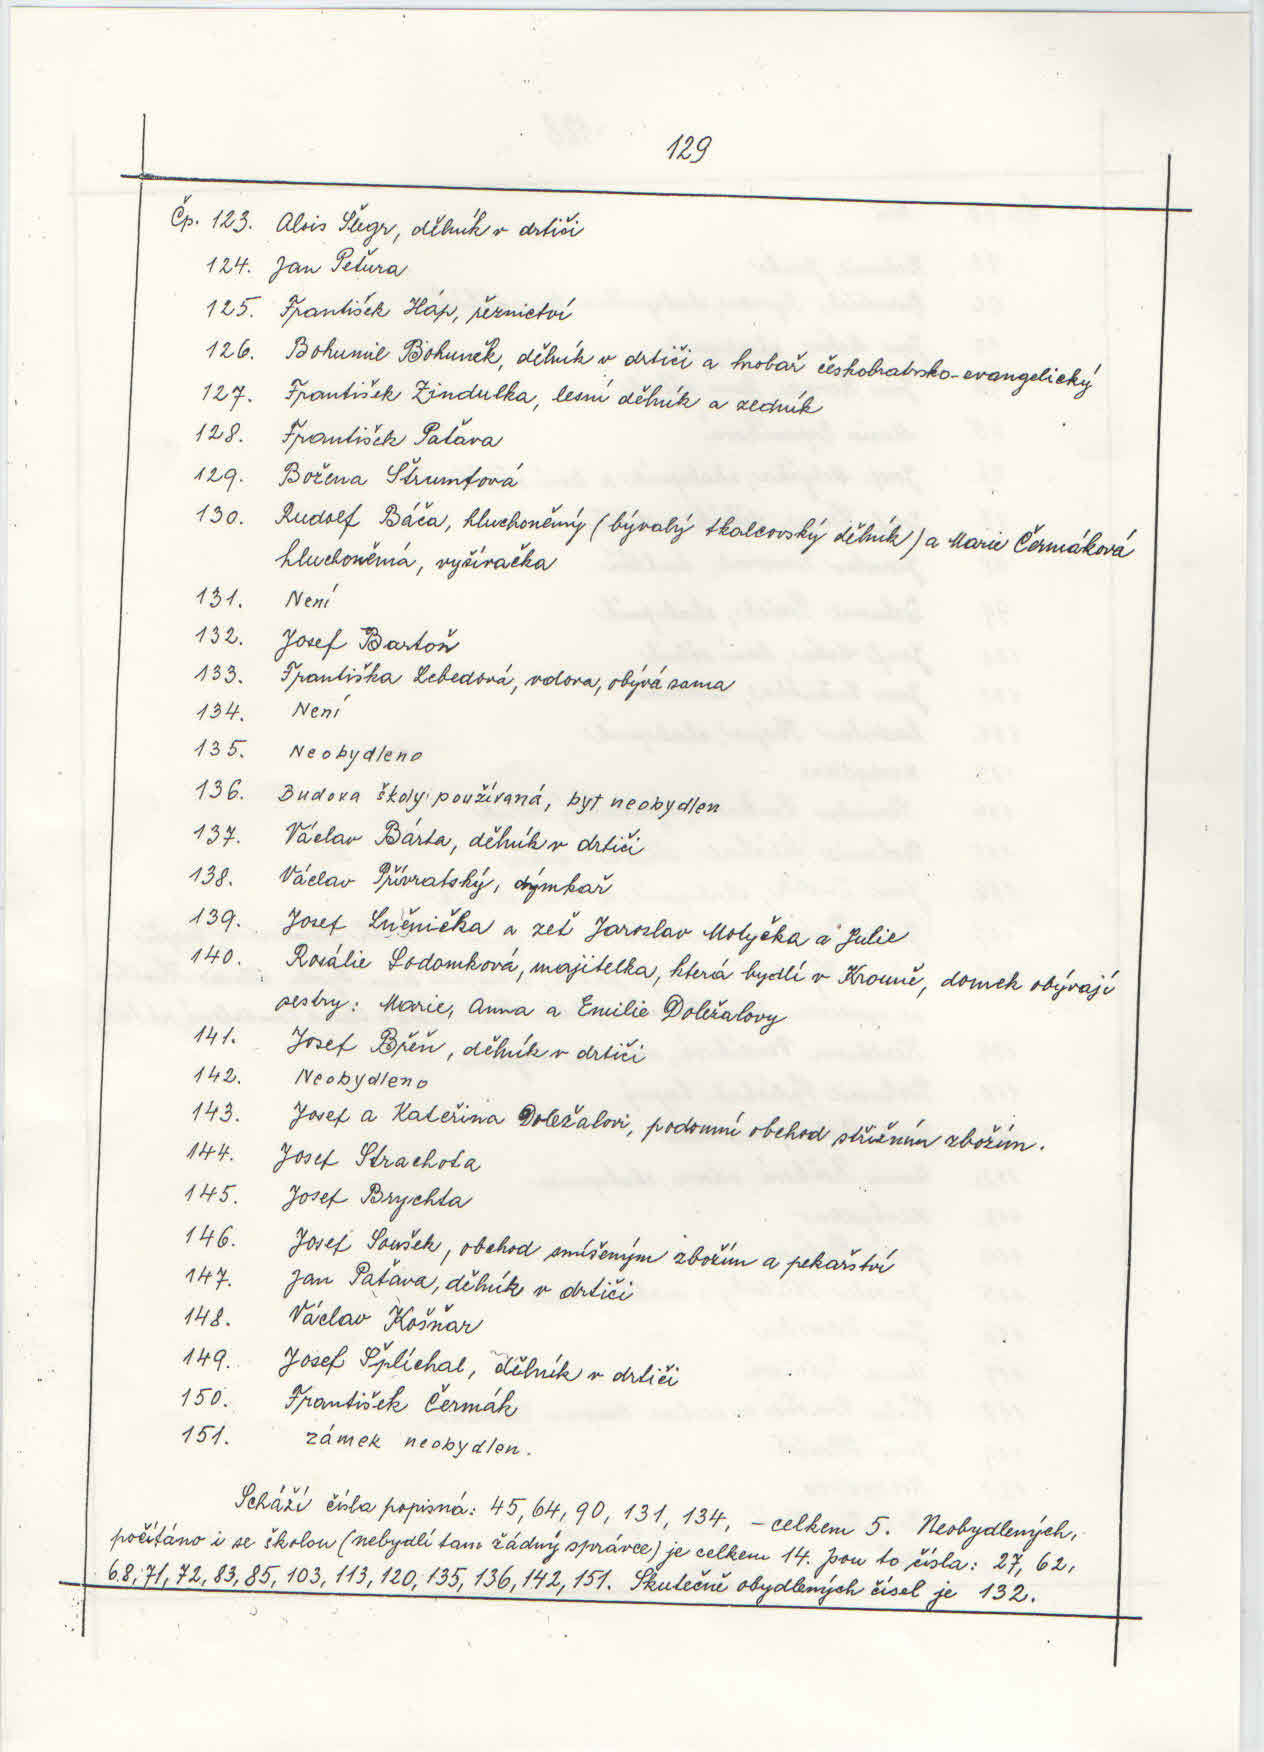 129
Čp. 123. Alois Šlégr, dělník v drtiči
124. Jan Peťura
125. František Háp, řeznictví
126. Bohumil Bohuněk, dělník v drtiči a hrobař českobratrsko-evangelický
127. František Zindulka, lesní dělník a zedník
128. František Paťava
129. Božena Štrumfová
130. Rudolf Báča, hluchoněmý (bývalý tkalcovský dělník) a Marie Čermáková
hluchoněmá, vyšívačka
131. Není
132. Josef Bartoň
133. Františka Lebedová, vdova, obývá sama
134. Není
135. Neobydleno
136. Budova školy používaná, byt neobydlen
137. Václav Bárta, dělník v drtiči
138. Václav Přívratský, dýmkař
139. Josef Lněnička a zeť Jaroslav Motyčka a Julie
140. Rosálie Sodomková, majitelka, která bydlí v Krouně, domek obývají
sestry: Marie, Anna a Emilie Doležalovy
141. Josef Břeň, dělník v drtiči
142. Neobydleno
143. Josef a Kateřina Doležalovi, podomní obchod střižním zbožím.
144. Josef Strachota
145. Josef Brychta
146. Josef Soušek, obchod smíšeným zbožím a pekařství
147. Jan Paťava, dělník v drtiči
148. Václav Košňar
149. Josef Šplíchal, dělník v drtiči
150. František Čermák
151. zámek neobydlen.
Scháží čísla popisná: 45, 64, 90, 131, 134, - celkem 5. Neobydlených,
počítáno i se školou (nebydlí tam žádný správce) je celkem 14. Jsou to čísla: 27, 62,
68, 71, 72, 83, 85, 103, 113, 120, 135, 136, 142, 151. Skutečně obydlených čísel je 132.